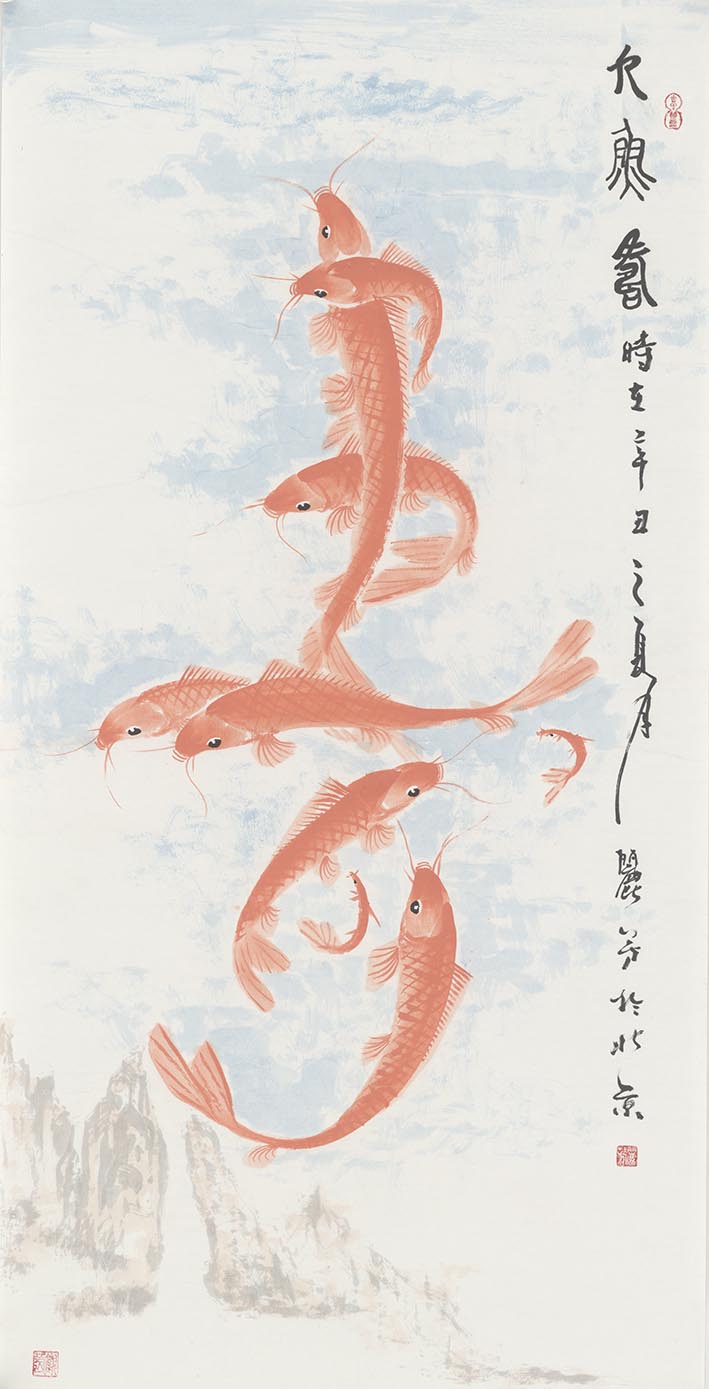 九魚壽時在辛丑之夏月麗芳於北京